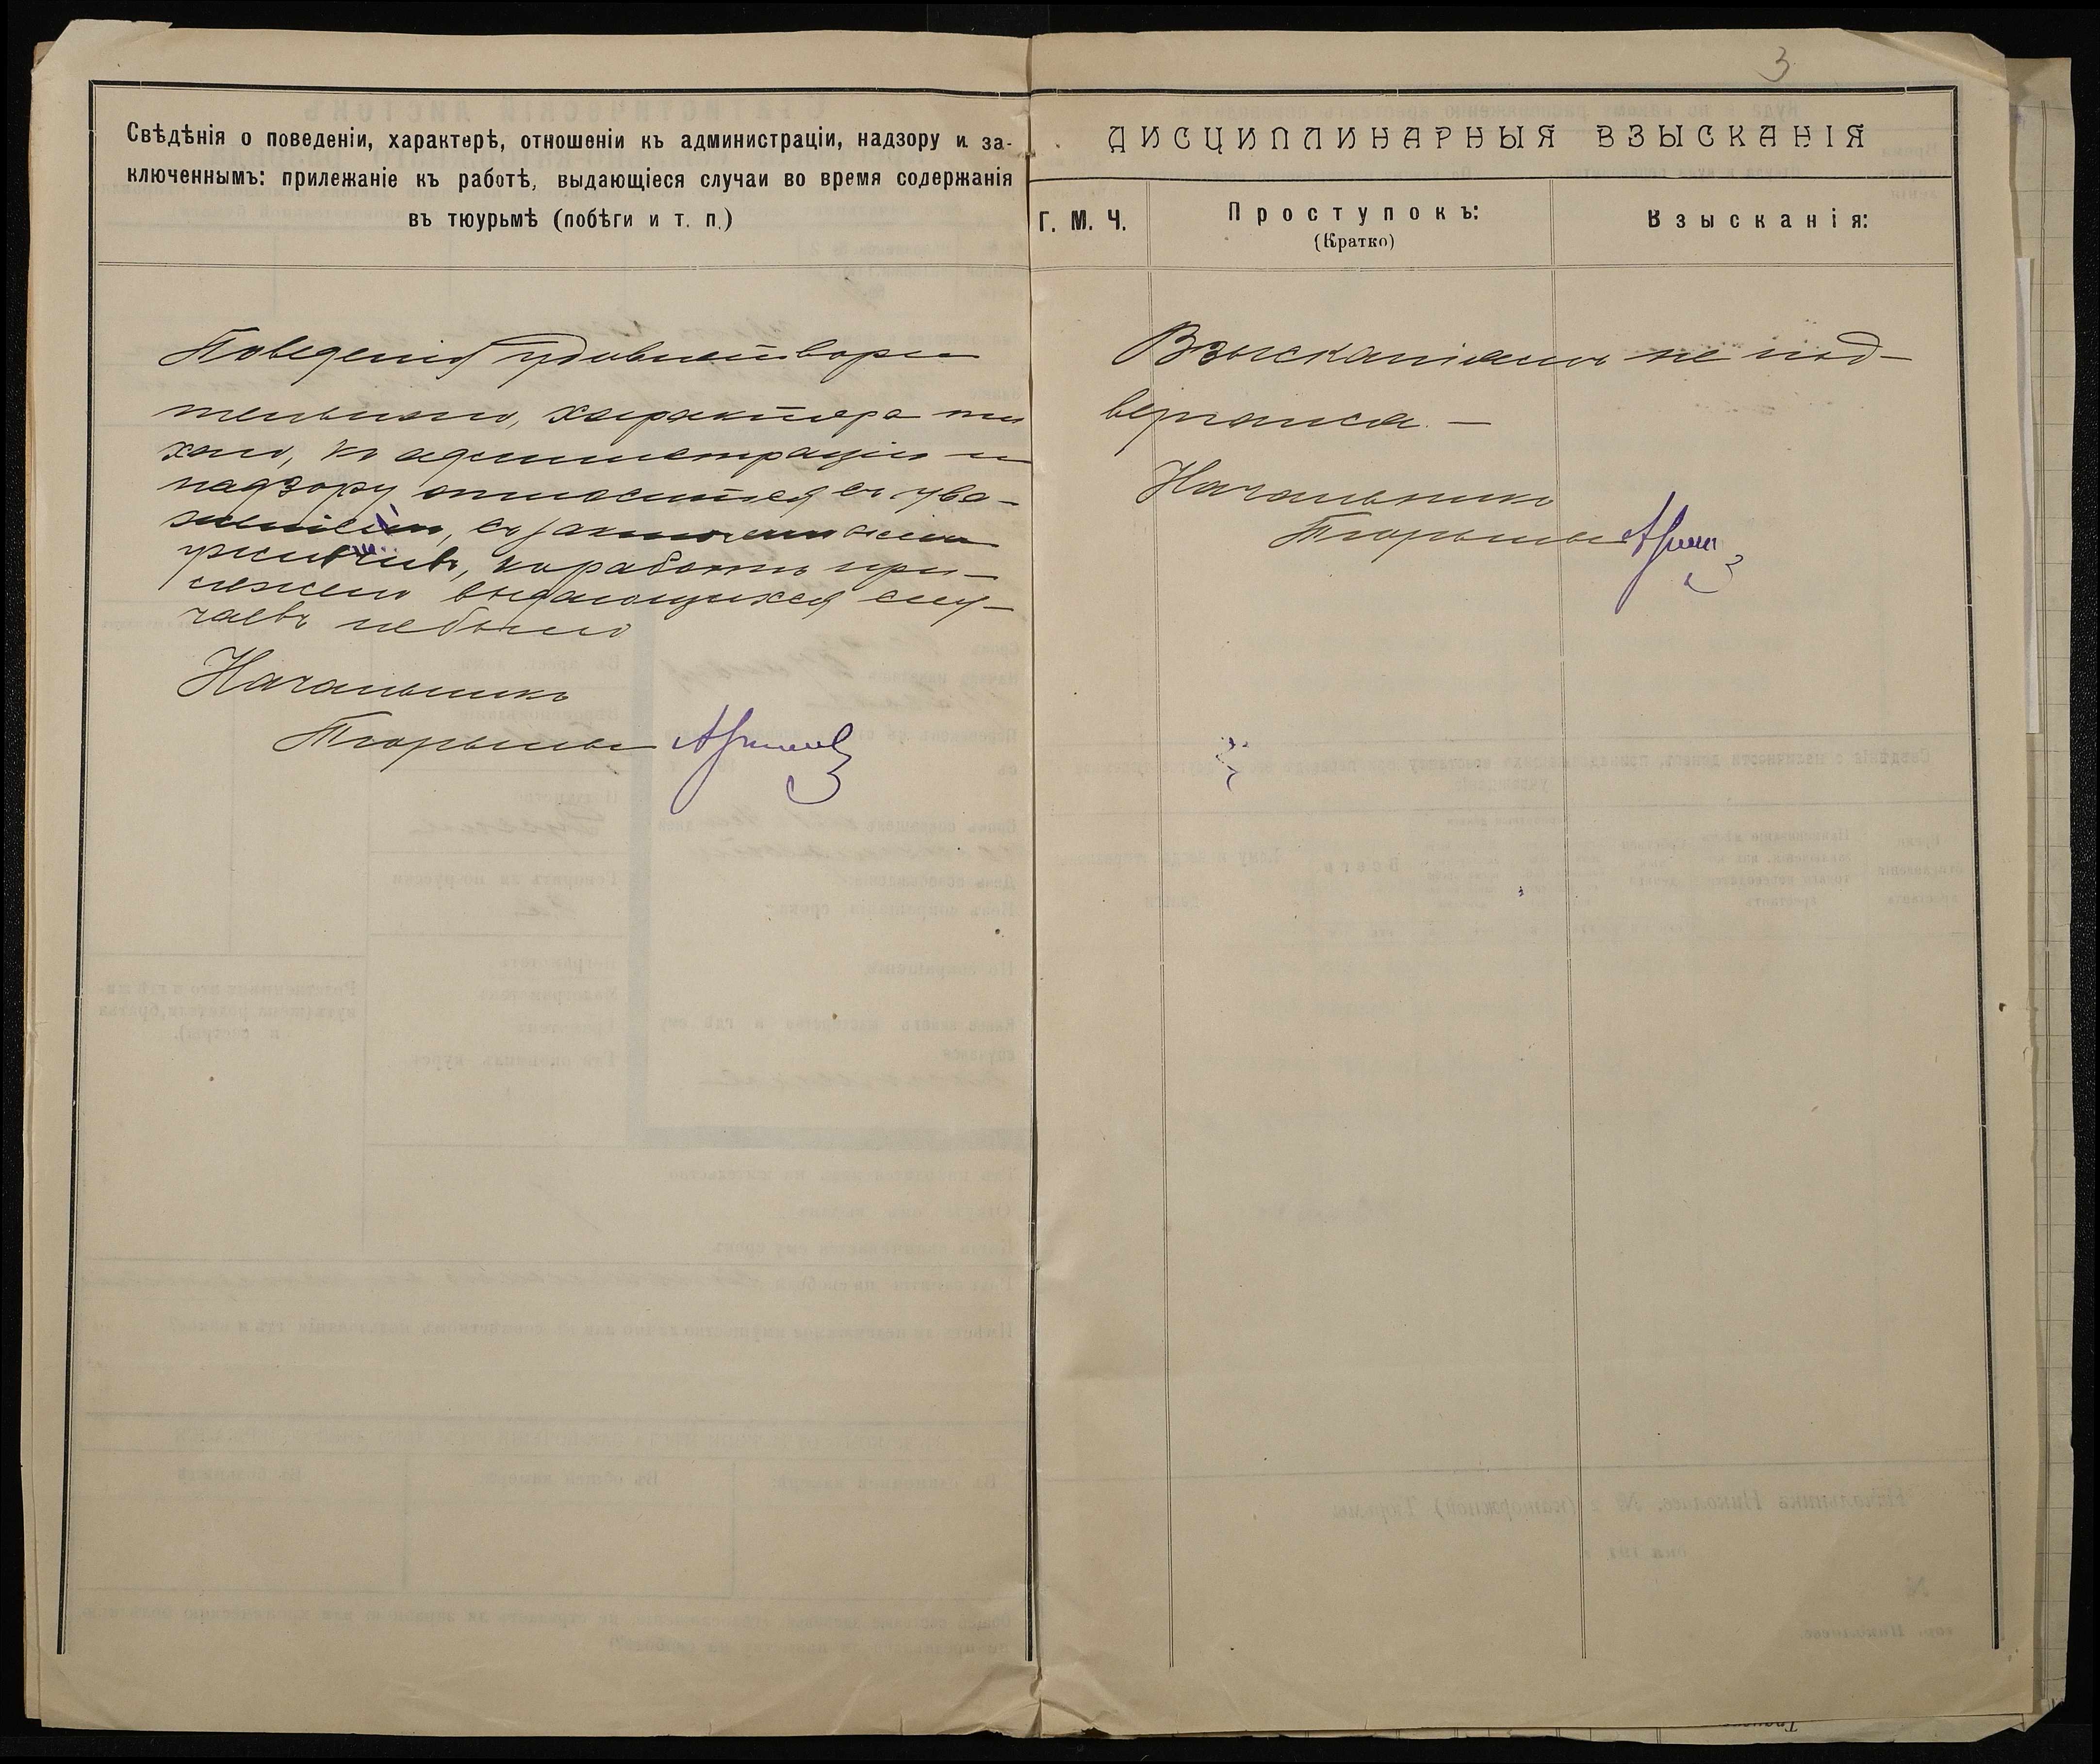 Свѣдѣнія о поведеніи, характерѣ, отношеніи къ администраціи, надзору и за-
ключеннымъ: прилежаніе къ работѣ, выдающіеся случаи во время содержанія
въ тюурьмѣ (побѣги и т. п.)
Поведенія удовлетвори
тельнаго, характера ти
хаго, къ администраціи и
надзору относится съ ува-
женіемъ, съ заключенными
уживчивъ, къ работѣ при-
леженъ выдающихся слу-
чаевъ небыло
Начальникъ
Тюрьмы
3
ДИСЦИПЛИНАРНЫЯ ВЗЫСКАНІЯ
Г. М. Ч.
Проступокъ:
(Кратко)
Взысканія:
Взысканіямъ не под-
вергался. —
Начальникъ
Тюрьмы